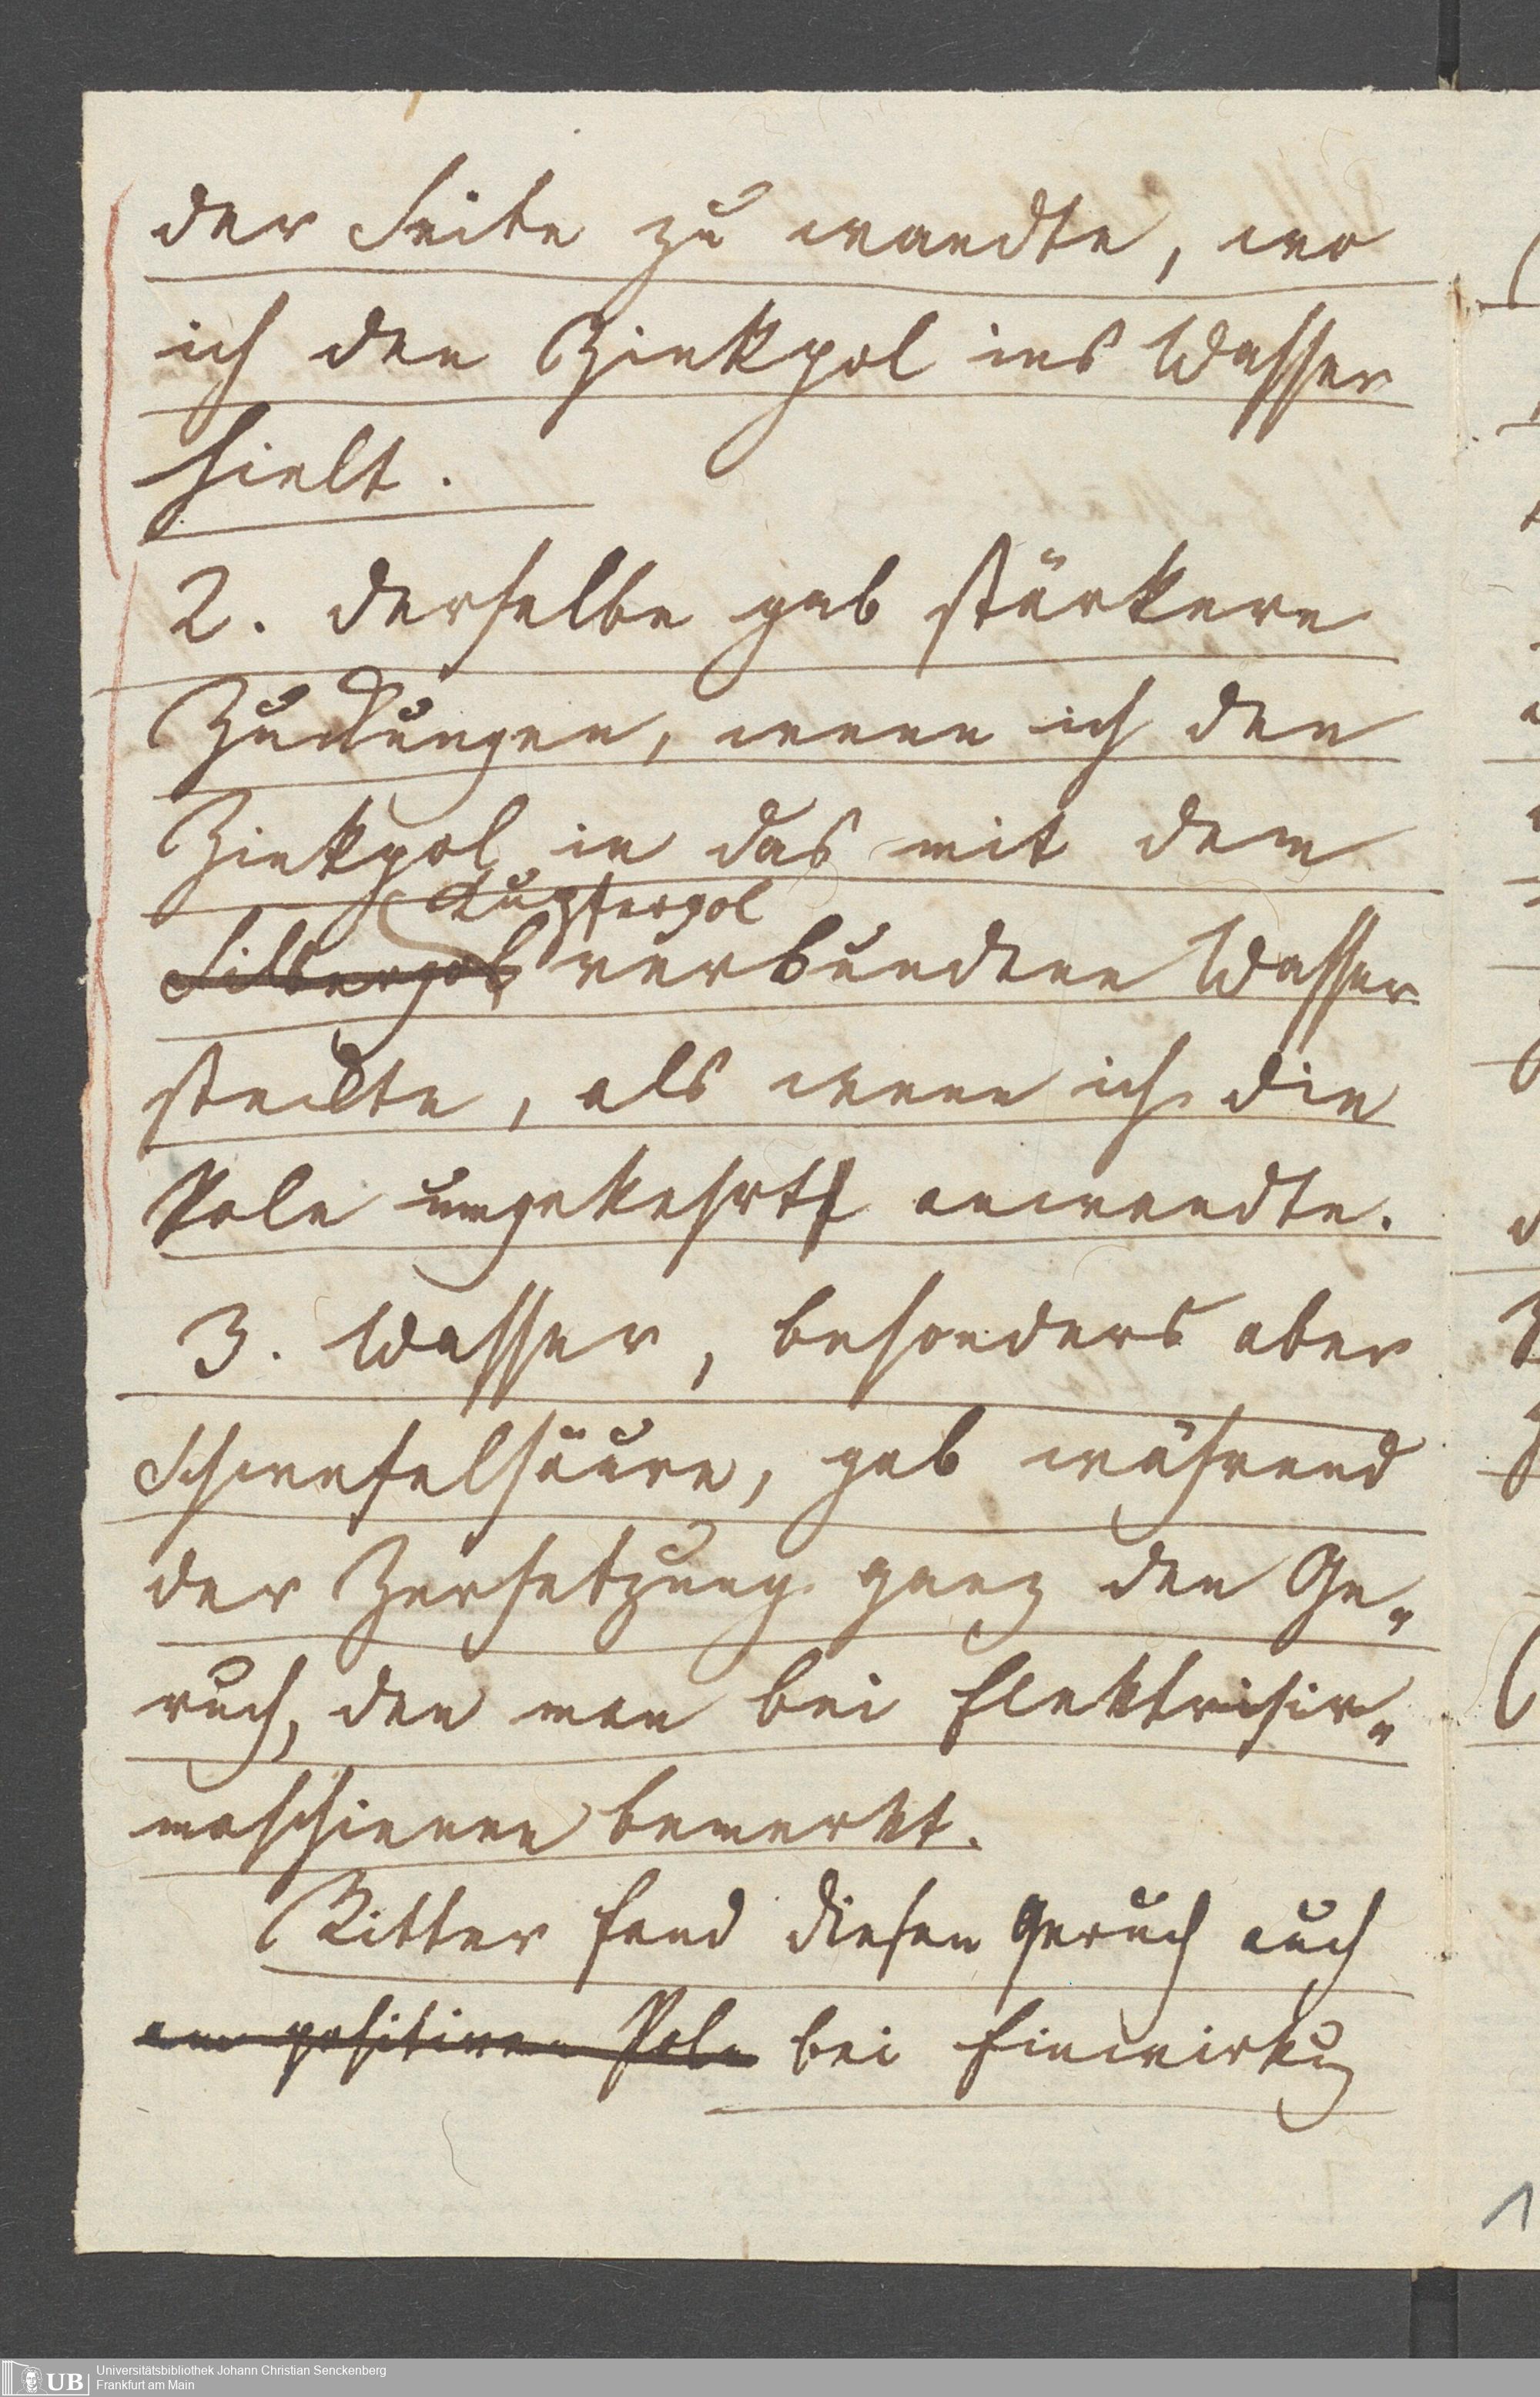 der Seite zu wandte, wo
ich den Zinkpol ins Wasser
hielt.
2. Derselbe gab stärkere
Zuckungen, wenn ich den
Zinkpol in das mit dem
Kupferpol
Silberpol verbundene Wasser
steckte, als wenn ich die
Pole umgekehrt anwandte.
3. Wasser, besonders aber
Schwefelsäure, gab während
der Zersetzung ganz den Ge„
ruch, den man bei Elektrisir„
maschienen bemerkt.
Ritter fand diesen Geruch auch
am positiven Pole bei Einwirkung
1
UB
Universitätsbibliothek Johann Christian Senckenberg
Frankfurt am Main